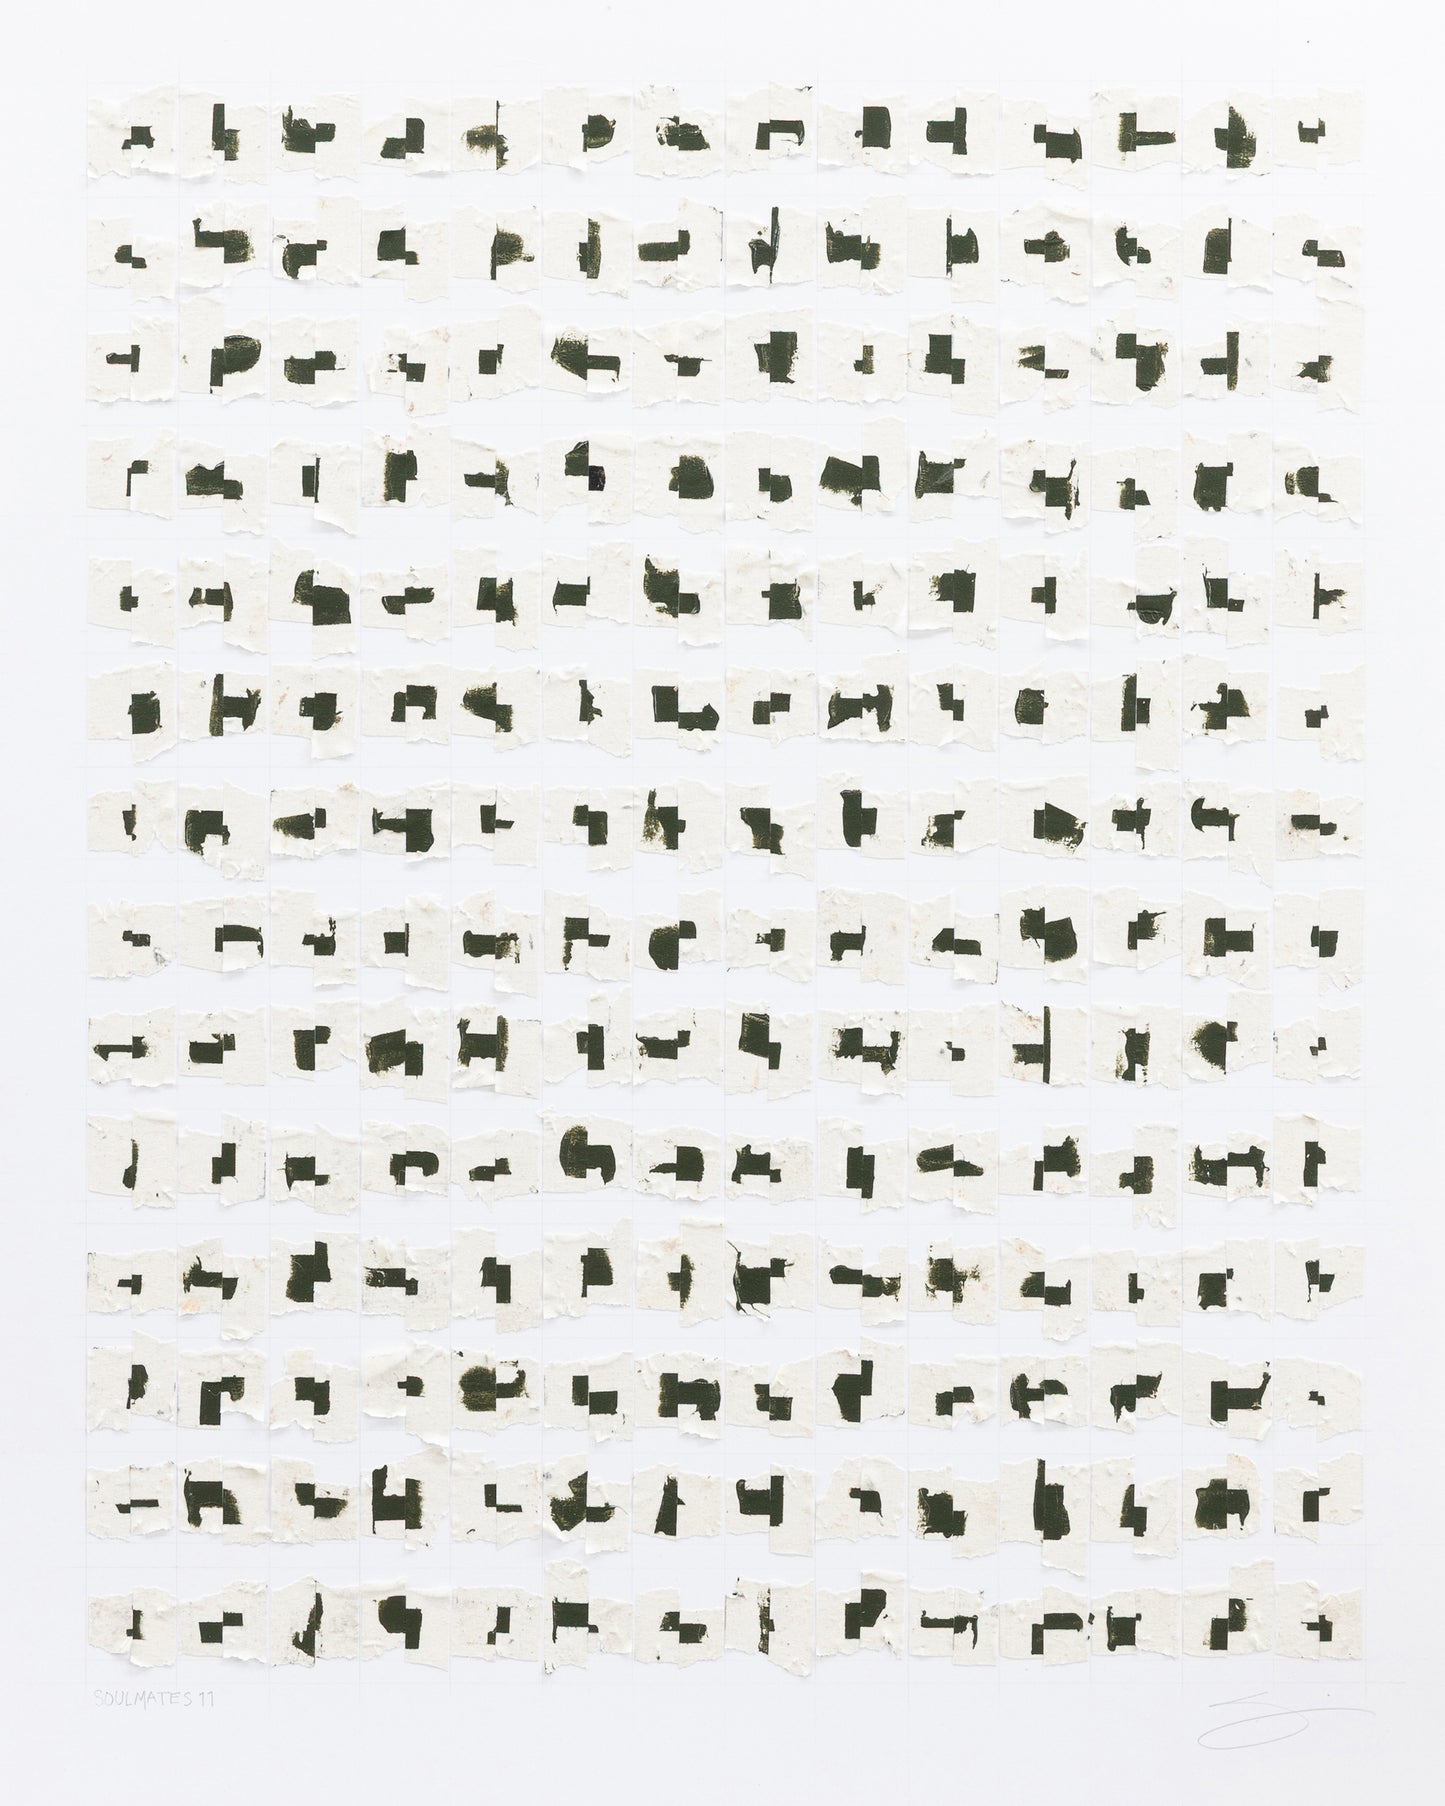 SOULMATES 11